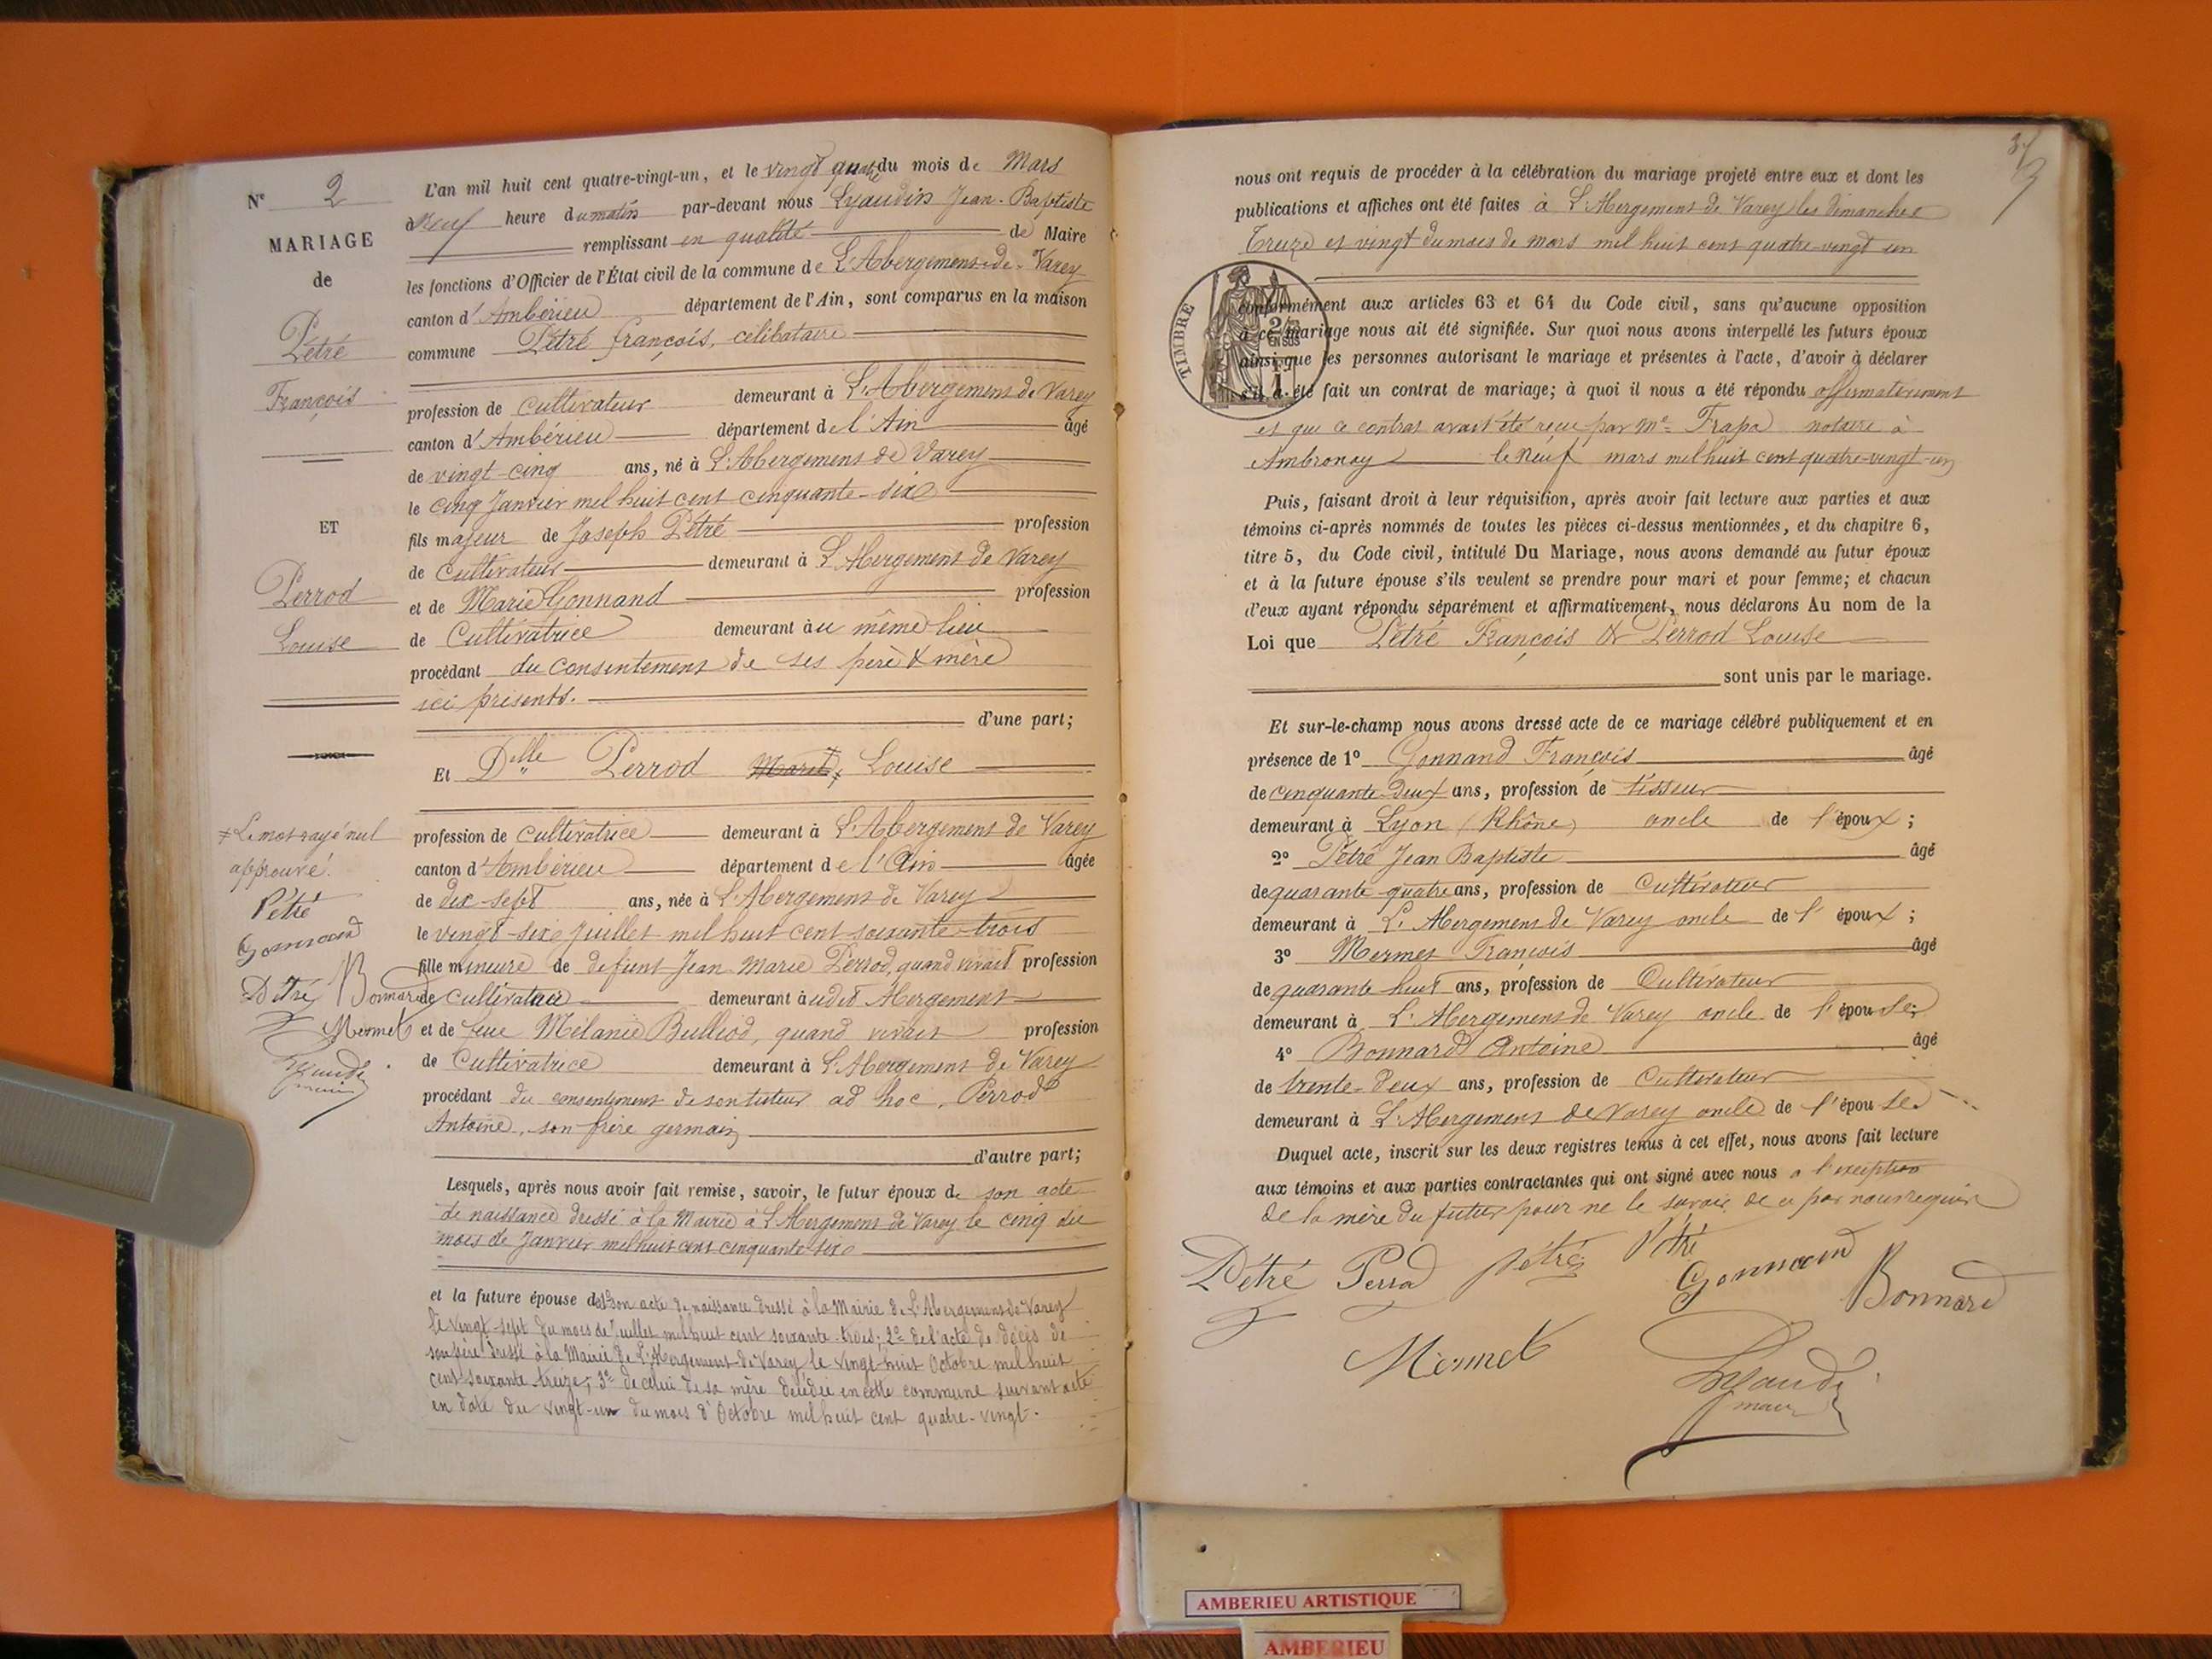 Nº 2
MARIAGE
de
Pétré
François
ET
Perrod
Louise
≠ Le mot rayé nul
approuvé.
Pétré
Gonnand
Pétré Bonnard
Mermet
Lyaudin
maire
L'an mil huit cent quatre-vingt-un, et le vingt quatre du mois de Mars
à Neuf heure du matin par-devant nous Lyaudin Jean-Baptiste
remplissant en qualité de Maire
les fonctions d'Officier de l'État civil de la commune de L'Abergement-de-Varey
canton d'Ambérieu département de l'Ain, sont comparus en la maison
commune Pétré françois, célibataire
profession de cultivateur demeurant à L'Abergement de Varey
canton d'Ambérieu département de l'Ain âgé
de vingt-cinq ans, né à L'Abergement de Varey
le cinq Janvier mil huit cent cinquante-six
fils majeur de Joseph Pétré profession
de cultivateur demeurant à L'Abergement de Varey
et de Marie Gonnand profession
de Cultivatrice demeurant au même lieu
procédant du consentement de ses père & mère
ici présents.
d'une part;
Et Delle Perrod Marie ≠ Louise
profession de cultivatrice demeurant à L'Abergement de Varey
canton d'Ambérieu département de l'Ain âgée
de dix-sept ans, née à L'Abergement de Varey
le vingt-six Juillet mil huit cent soixante-trois
fille mineure de defunt Jean Marie Perrod, quand vivait profession
de cultivateur demeurant audit Abergement
et de feue Mélanie Bulliod, quand vivait profession
de Cultivatrice demeurant à L'Abergement de Varey
procédant du consentement de son tuteur ad hoc, Perrod
Antoine, son frère germain
d'autre part;
Lesquels, après nous avoir fait remise, savoir, le futur époux de son acte
de naissance dressé à la Mairie à L'Abergement de Varey le cinq du
mois de Janvier mil huit cent cinquante-six
et la future épouse de 1º son acte de naissance dressé à la Mairie de L'Abergement de Varey
le vingt-sept du mois de Juillet mil huit cent soixante-trois; 2º de l'acte de décès de
son père dressé à la Mairie de L'Abergement-de-Varey le vingt-huit Octobre mil huit
cent soixante treize; 3º de celui de sa mère décédée en cette commune suivant acte
en date du vingt-un du mois d'Octobre mil huit cent quatre-vingt.
nous ont requis de procéder à la célébration du mariage projeté entre eux et dont les
publications et affiches ont été faites à L'Abergement de Varey les dimanches
treize et vingt du mois de mars mil huit cent quatre-vingt un
TIMBRE
conformément aux articles 63 et 64 du Code civil, sans qu'aucune opposition
à ce mariage nous ait été signifiée. Sur quoi nous avons interpellé les futurs époux
ainsi que les personnes autorisant le mariage et présentes à l'acte, d'avoir à déclarer
s'il a été fait un contrat de mariage; à quoi il nous a été répondu affirmativement
et que ce contrat avait été reçu par Me Frapa notaire à
Ambronay le Neuf mars mil huit cent quatre-vingt-un
Puis, faisant droit à leur réquisition, après avoir fait lecture aux parties et aux
témoins ci-après nommés de toutes les pièces ci-dessus mentionnées, et du chapitre 6,
titre 5, du Code civil, intitulé Du Mariage, nous avons demandé au futur époux
et à la future épouse s'ils veulent se prendre pour mari et pour femme; et chacun
d'eux ayant répondu séparément et affirmativement, nous déclarons Au nom de la
Loi que Pétré François & Perrod Louise
sont unis par le mariage.
Et sur-le-champ nous avons dressé acte de ce mariage célébré publiquement et en
présence de 1º Gonnand François âgé
de cinquante-deux ans, profession de tisseur
demeurant à Lyon (Rhône) oncle de l'époux;
2º Pétré Jean Baptiste âgé
de quarante-quatre ans, profession de Cultivateur
demeurant à L'Abergement de Varey oncle de l'époux;
3º Mermet François âgé
de quarante huit ans, profession de Cultivateur
demeurant à L'Abergement de Varey oncle de l'épouse;
4º Bonnard Antoine âgé
de trente-deux ans, profession de Cultivateur
demeurant à L'Abergement de Varey oncle de l'épouse.
Duquel acte, inscrit sur les deux registres tenus à cet effet, nous avons fait lecture
aux témoins et aux parties contractantes qui ont signé avec nous à l'exception
de la mère du futur pour ne le savoir, de ce par nous requise
Pétré Perrod Pétré Pétré
Gonnand Bonnard
Mermet
Lyaudin
maire
AMBERIEU ARTISTIQUE
AMBERIEU